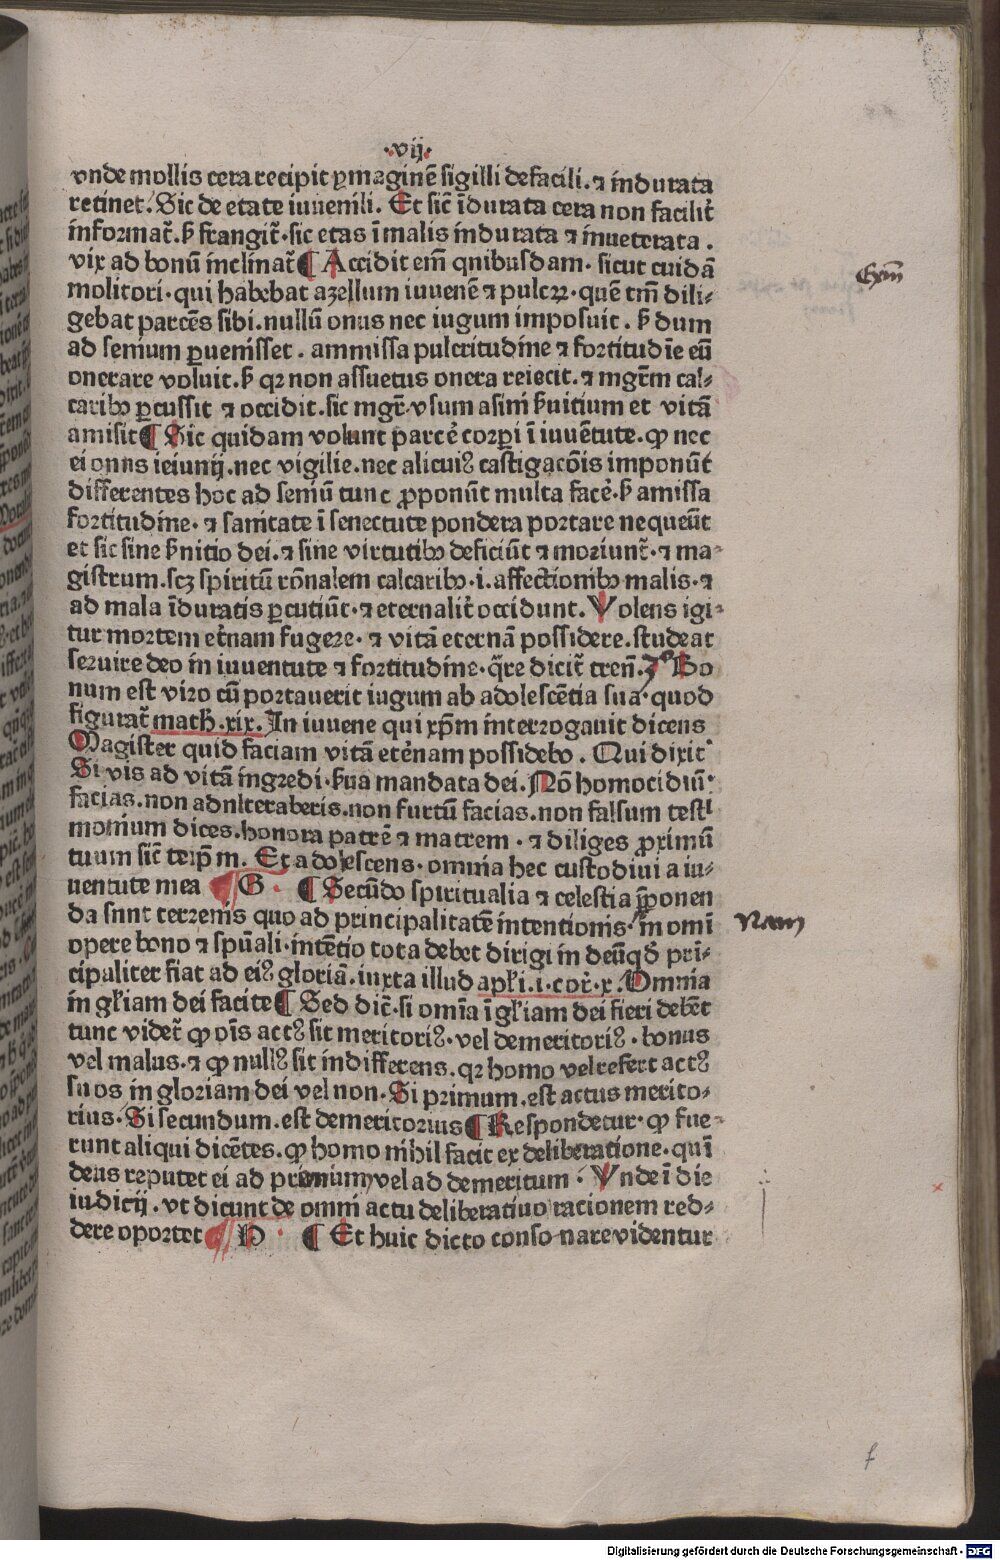 ·vij·
vnde mollis cera recipit ymaginē sigilli defacili. ⁊ indurata
retinet. Sic de etate iuuenili. Et sic̄ īdurata cera non facilit̄
informat̄. s̄ frangit̄·sic etas ī malis indurata ⁊ inueterata.
vix ad bonū inclinat̄ ¶ Accidit em̄ qnibusdam· sicut cuidā
molitori· qui habebat azellum iuuenē ⁊ pulcꝝ· quē tm̄ dili-
gebat parcēs sibi. nullū onus nec iugum imposuit. s̄ dum
ad senium ꝑuenisset. ammissa pulcritudine ⁊ fortitudīe eū
onerare voluit. s̄ qꝛ non assuetus onera reiecit. ⁊ mgr̄m cal-
caribꝰ ꝑcussit ⁊ occidit. sic mgr̄· vsum asini s̄uitium et vitā
amisit ¶ Sic quidam volunt parcē corꝑi ī iuuētute. ꝙ nec
ei onns ieiunij. nec vigilie. nec alicuiꝰ castigacōis imponūt
differentes hoc ad seniū tunc ꝓponūt multa facē· s̄ amissa
fortitudine· ⁊ sanitate ī senectute pondera portare nequeūt
et sic sine s̄nitio dei. ⁊ sine virtutibꝰ deficiūt ⁊ moriunt̄· ⁊ ma-
gistrum. scꝫ spiritū rōnalem calcaribꝰ· i. affectionibꝰ malis· ⁊
ad mala īduratis ꝑcutiūt· ⁊ eternalit̄ occidunt. Volens igi-
tur mortem et̄nam fugere· ⁊ vitā eternā possidere. studeat
seruire deo in iuuentute ⁊ fortitudine· q̄re dicit̄ tren̄. 3° Bo
num est viro cū portauerit iugum ab adolescētia sua· quod
figurat̄ math. xix. In iuuene qui xp̄m interrogauit dicens
Magister quid faciam vitā etēnam possidebo. Qui dixit
Si vis ad vitā ingredi· s̄ua mandata dei. Nō homocidiū
facias. non adnlteraberis. non furtū facias. non falsum testi
monium dices. honora patrē ⁊ matrem· ⁊ diliges ꝓximū
tuum sic̄ teip̄m. Et adolescens· omnia hec custodiui a iu-
uentute mea G· ¶ Secūdo spiritualia ⁊ celestia p̄ponen
da snnt terrenis quo ad principalitatē intentionis· in omī
opere bono ⁊ spūali· intētio tota debet dirigi in deū qd̄ pri-
cipaliter fiat ad eiꝰ gloriā. iuxta illud apl̄i. i. cor̄· x. Omnia
in gl̄iam dei facite ¶ Sed dic̄· si omīa ī gl̄iam dei fieri debēt
tunc videt̄ ꝙ oīs actꝰ sit meritoriꝰ· vel demeritoriꝰ· bonus
vel malus· ⁊ ꝙ nullꝰ sit indifferens. qꝛ homo vel refert actꝰ
suos in gloriam dei vel non. Si primum. est actus merito-
rius· Si secundum. est demeritorius ¶ Respondetur· ꝙ fue-
runt aliqui dicētes. ꝙ homo nihil facit ex deliberatione. quī
deus reputet ei ad primum vel ad demeritum· Vnde ī die
iudicij. vt dicunt de omni actu deliberatiuo racionem red-
dere oportet H· ¶ Et huic dicto conso nare videntur
Exm̄
Nam
f
Digitalisierung gefördert durch die Deutsche Forschungsgemeinschaft · DFG